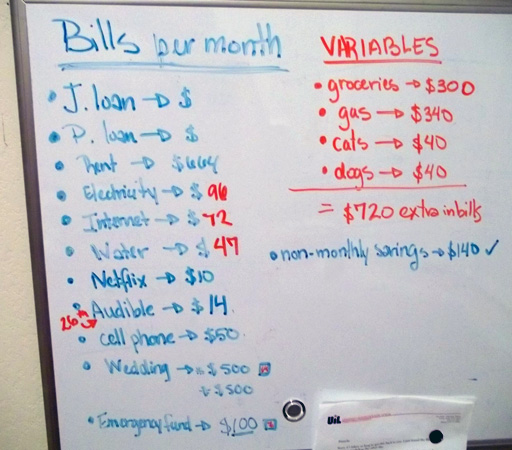 Bills per month
• J. loan → $
• P. loan → $
• Rent → $664
• Electricity → $ 96
• Internet → $ 72
• Water → $ 47
• Netflix → $10
• Audible → $ 14
• cell phone → $50
• Wedding → $500
+ $500
• Emergency fund → $100
VARIABLES
• groceries → $300
• gas → $340
• cats → $40
• dogs → $40
= $720 extra in bills
• non-monthly savings → $140 ✓
UiL